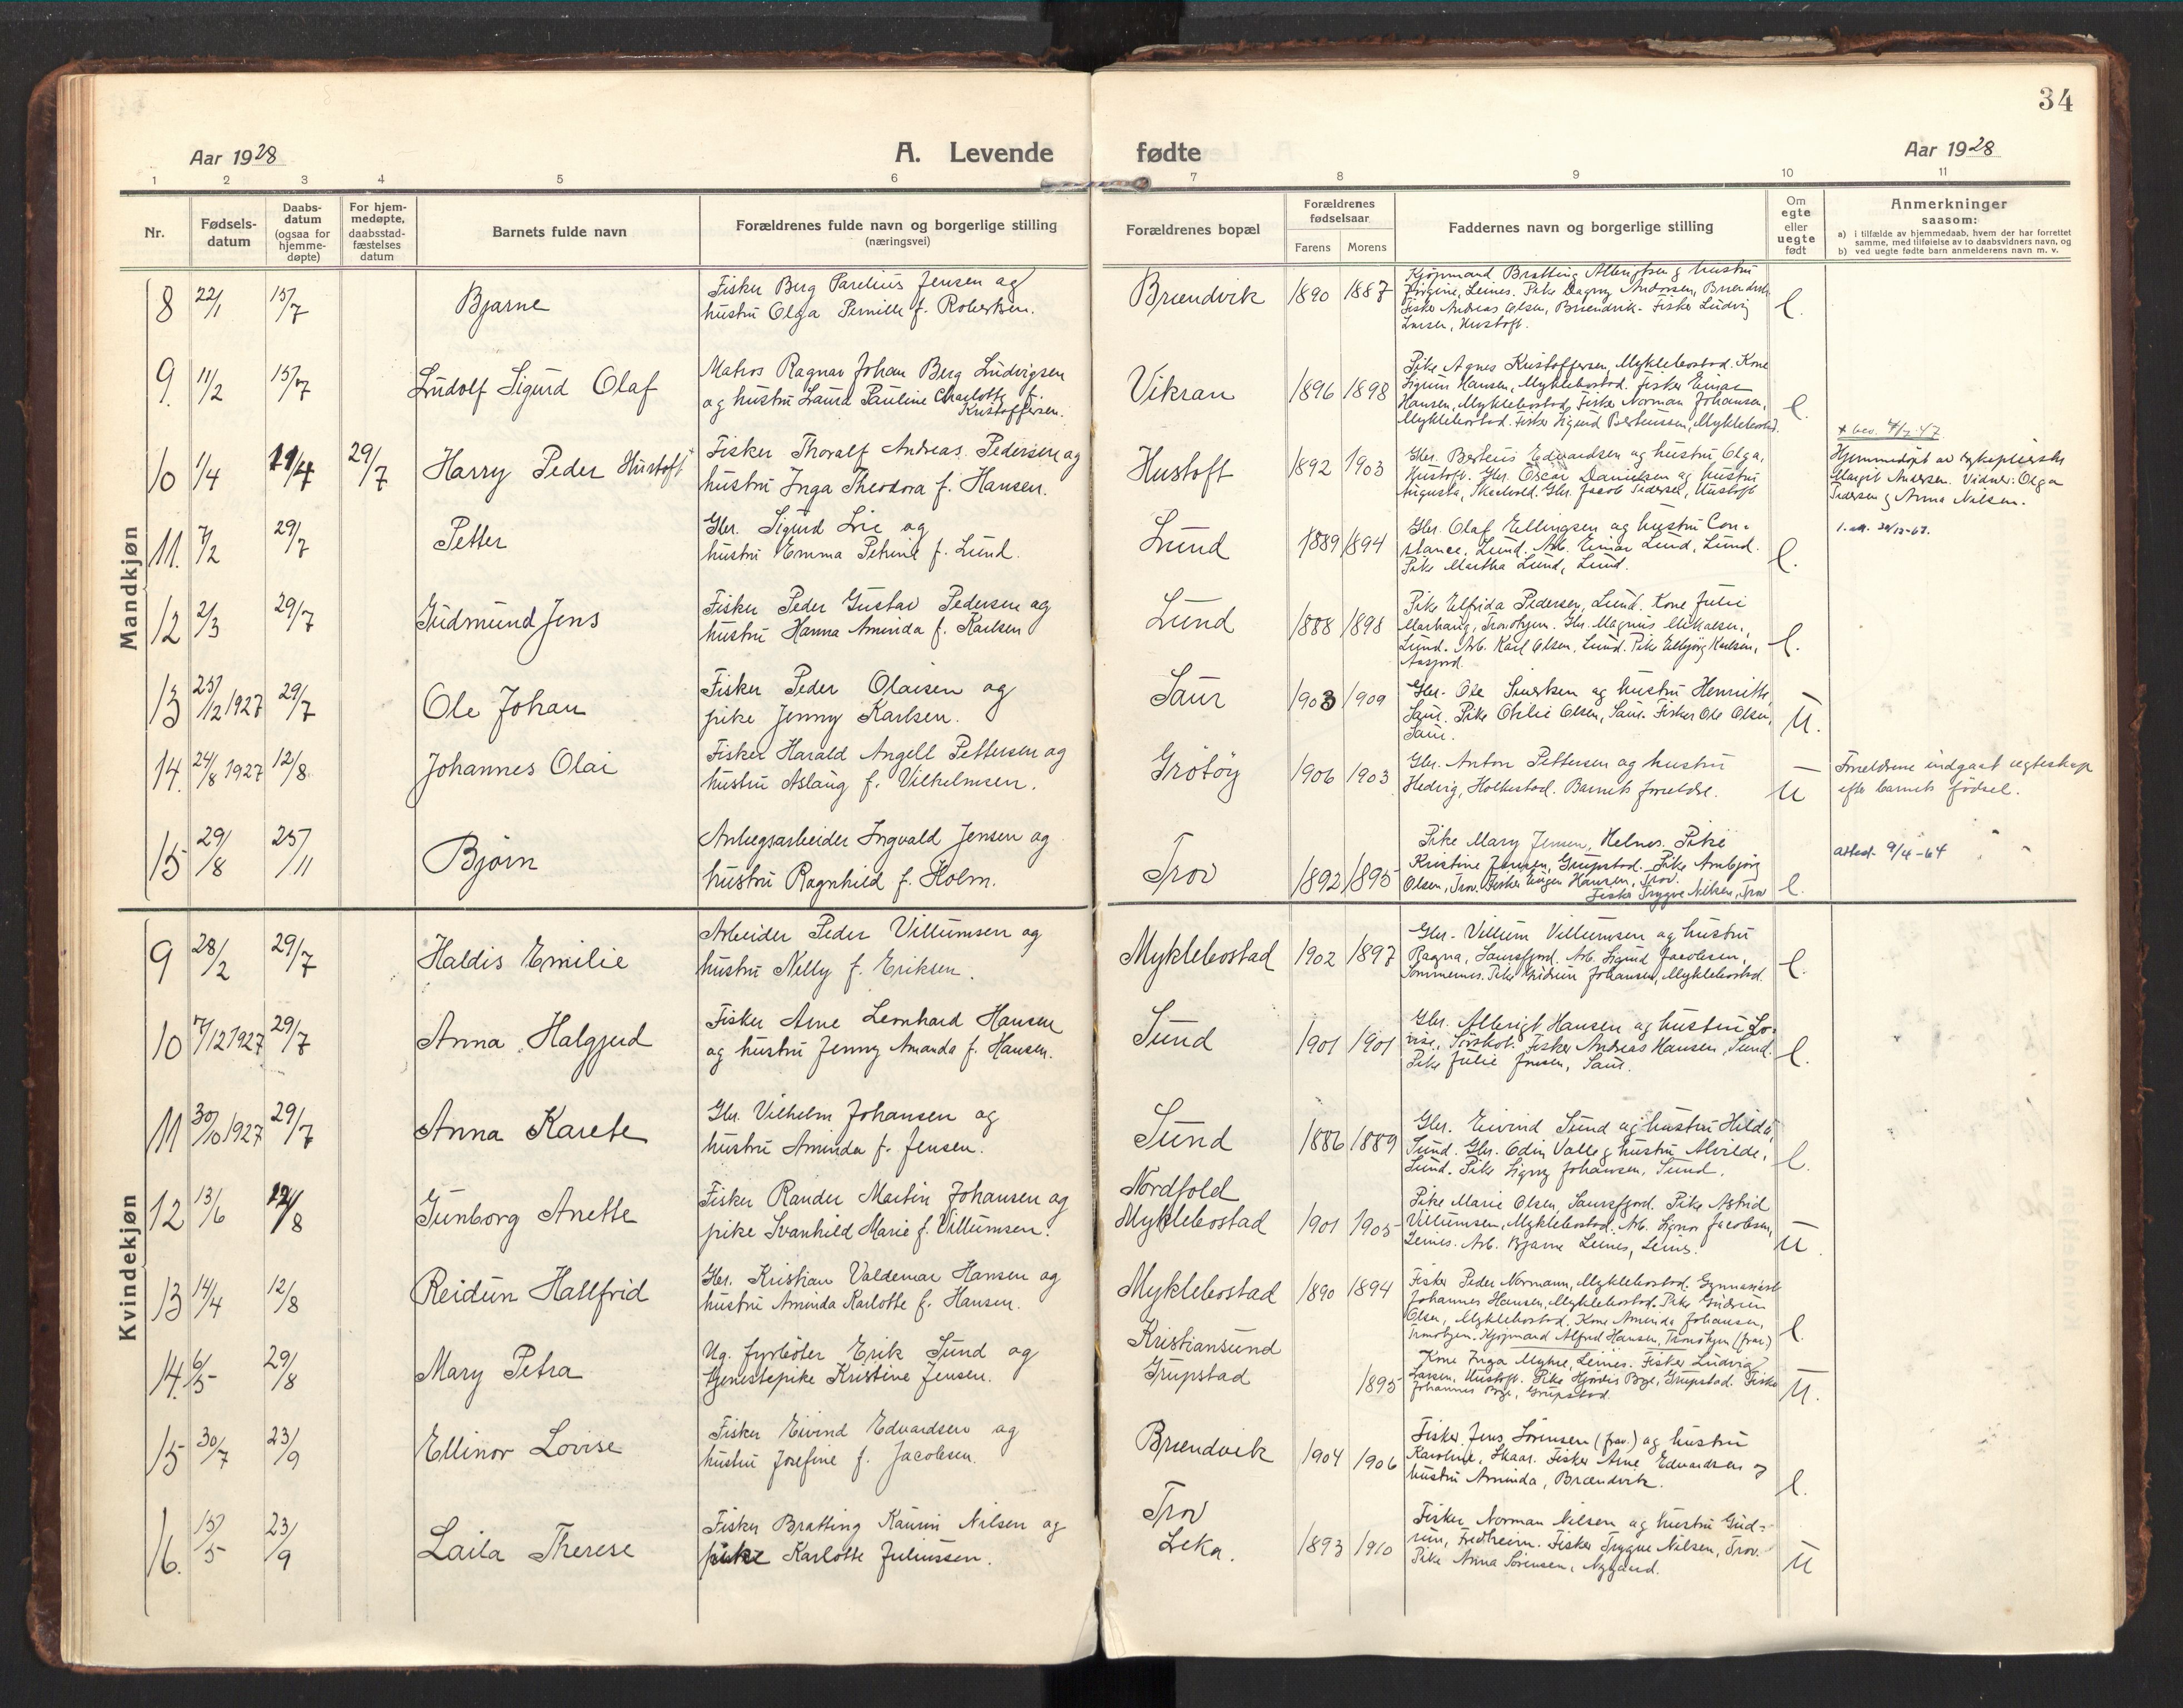 34
Aar 1928
A. Levende fødte
Aar 1928
1 2 3 4 5 6 7 8 9 10 11
Nr.
Fødsels-
datum
Daabs-
datum
(ogsaa for
hjemme-
døpte)
For hjem-
medøpte,
daabsstad-
fæstelses
datum
Barnets fulde navn
Forældrenes fulde navn og borgerlige stilling
(næringsvei)
Forældrenes bopæl
Forældrenes
fødselsaar
Farens Morens
Faddernes navn og borgerlige stilling
Om
egte
eller
uegte
født
Anmerkninger
saasom:
a) i tilfælde av hjemmedaab, hvem der har forrettet
samme, med tilføielse av to daabsvidners navn, og
b) ved uegte fødte barn anmelderens navn m. v.
Mandkjøn
8 22/1 15/7 Bjarne
Fisker Berg Parelius Jensen og
hustru Olga Pernille f. Robertsen.
Brændvik 1890 1887
Kjøpmand Bratting Albrigtsen & hustru
Virgine, Leines. Pike Dagny Andorsen, Brændvik
Fisker Andreas Olsen, Brændvik. Fisker Ludvig
Larsen, Hustoft.
e.
9. 11/2 15/7 Ludolf Sigurd Olaf
Matros Ragnar Johan Berg Ludvigsen
og hustru Laura Pauline Charlotte f.
Kristoffersen.
Vikran 1896 1898
Pike Agnes Kristoffersen, Myklebostad. Kone
Sigrun Hansen, Myklebostad. Fisker Einar
Hansen, Myklebostad, Fisker Norman Johansen,
Myklebostad. Fisker Sigurd Berteussen, Myklebostad.
e.
10 1/4 11/4 29/7 Harry Peder Hustoft
Fisker Thoralf Andreas Pedersen og
hustru Inga Theodora f. Hansen.
Hustoft 1892 1903
Gbr. Berteus Edvardsen og hustru Olga,
Hustoft. Gbr. Oscar Danielsen og hustru
Augusta, Gbr. Jacob Pedersen, Hustoft
Hjemmedøpt av sykepleierske
Margit Andersen. Vidner: Olga
Pedersen & Anna Nilsen.
11. 7/2 29/7 Petter
Gbr. Sigurd Lie og
hustru Emma Petrine f. Lund.
Lund 1889 1894
Gbr. Olaf Ellingsen og hustru Con-
stance, Lund. Arb. Einar Lund, Lund.
Pike Martha Lund, Lund.
e.
12 2/3 29/7 Gudmund Jens
Fisker Peder Gustav Pedersen og
hustru Hanna Aminda f. Karlsen
Lund 1888 1898
Pike Elfrida Pedersen, Lund. Kone Julie
Marhaug, Trondhjem. Gbr. Magnus Mikalsen,
Lund. Arb. Karl Olsen, Lund. Pike Ellbjørg Karlsen,
e.
13 25/12 1927 29/7 Ole Johan
Fisker Peder Olaisen og
pike Jenny Karlsen.
Saur 1903 1909
Gbr. Ole Sivertsen og hustru Henriette,
Saur. Pike Otilie Olsen, Saur. Fisker Ole Olsen,
Saur.
U.
14. 24/8 1927 12/8. Johannes Olai
Fisker Harald Angell Pettersen og
hustru Aslaug f. Vilhelmsen.
Grøtøy 1906 1903
Gbr. Anton Pettersen og hustru
Hedvig, Holkestad. Barnets forældre.
U
Forældrene indgaat egteskap
efter barnets fødsel.
15 29/8 25/11 Bjørn
Anlægsarbeider Ingvald Jensen og
hustru Ragnhild f. Holm.
Trov 1892 1895
Pike Mary Jensen, Helnes. Pike
Kristine Jensen, Grupstad. Pike Ambjørg
Olsen, Trov. Fisker Eugen Hansen, Trov.
Fisker Trygve Nilsen, Trov
e.
attest 9/4-64
Kvindekjøn
9 28/2 29/7 Haldis Emilie
Arbeider Peder Villumsen og
hustru Nelly f. Eriksen.
Myklebostad 1902 1897
Gbr. Villum Villumsen og hustru
Ragna, Saursfjord. Arb. Sigurd Jacobsen,
Sommernes. Pike Gudrun Johansen, Myklebostad.
e.
10 7/12 1927 29/7 Anna Halgjerd
Fisker Arne Leonhard Hansen
og hustru Jenny Amanda f. Hansen.
Sund 1901 1901
Gbr. Albrigt Hansen og hustru Lo-
vise, Sørskot. Fisker Andreas Hansen, Sund.
Pike Julie Jensen, Saur.
e.
11 30/10 1927 29/7 Anna Karete
Gbr. Vilhelm Johansen og
hustru Aminda f. Jensen.
Sund 1886 1889
Gbr. Eivind Sund og hustru Hilda,
Sund. Gbr. Odin Valle & hustru Alvilde,
Sund. Pike Signy Johansen, Sund.
e.
12 13/6 12/8 Gunborg Anette
Fisker Rander Martin Johansen og
pike Svanhild Marie f. Villumsen.
Nordfold
Myklebostad 1901 1905
Pike Marie Olsen, Saursfjord. Pike Astrid
Villumsen, Myklebostad. Arb. Signor Jacobsen,
Leines. Arb. Bjarne Leines, Leines.
U.
13 14/4 12/8 Reidun Hallfrid
Gbr. Kristian Valdemar Hansen og
hustru Aminda Karlotte f. Hansen.
Myklebostad 1890 1894
Fisker Peder Normann, Myklebostad. Gymnasiast
Johannes Hansen, Myklebostad. Pike Gudrun
Olsen, Myklebostad. Kone Aminda Johansen,
Trondhjem. Kjøpmand Alfred Hansen, Trondhjem (frav.)
e.
14. 6/5 29/8 Mary Petra
Ug. fyrbøter Erik Sund og
tjenestepike Kristine Jensen.
Kristiansund
Grupstad 1895
Kone Inga Myhre, Leines. Fisker Ludvig
Larsen, Hustoft. Pike Hjørdis Bye, Grupstad. Fisker
Johannes Bye, Grupstad.
U.
15 30/7 23/9 Ellinor Lovise
Fisker Eivind Edvardsen og
hustru Josefine f. Jacobsen.
Brændvik 1904 1906
Fisker Jens Sørensen (frav.) og hustru
Karoline, Skaar. Fisker Arne Edvardsen og
hustru Aminda, Brændvik.
e.
16. 15/5 23/9 Laila Therese
Fisker Bratting Kaurin Nilsen og
pike Karlotte Juliussen.
Trov
Leka. 1893 1910
Fisker Norman Nilsen og hustru Gud-
run, Fredheim. Fisker Trygve Nilsen, Trov.
Pike Anna Sørensen, Nygaard.
U